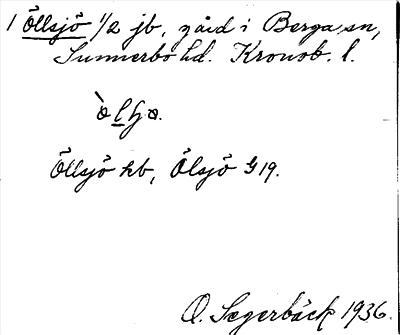 1 Öllsjö 1/2 jb, gård i Berga sn,
Sunnerbo hd. Kronob. l.
Öllsjö kb, Ölsjö G 19.
O. Segerbäck 1936.